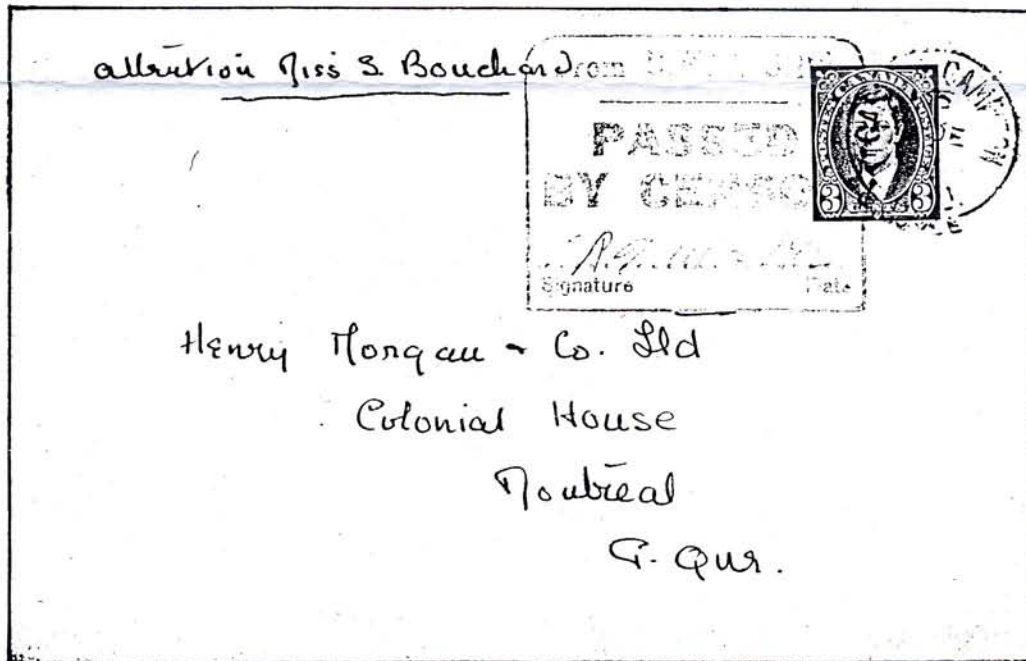 attention Miss S. Bouchard
From
PASSED
BY CENSOR
Signature Date
POSTES CANADA POSTAGE
3 3
Henry Morgan & Co. Ltd
Colonial House
Montréal
P. Que.